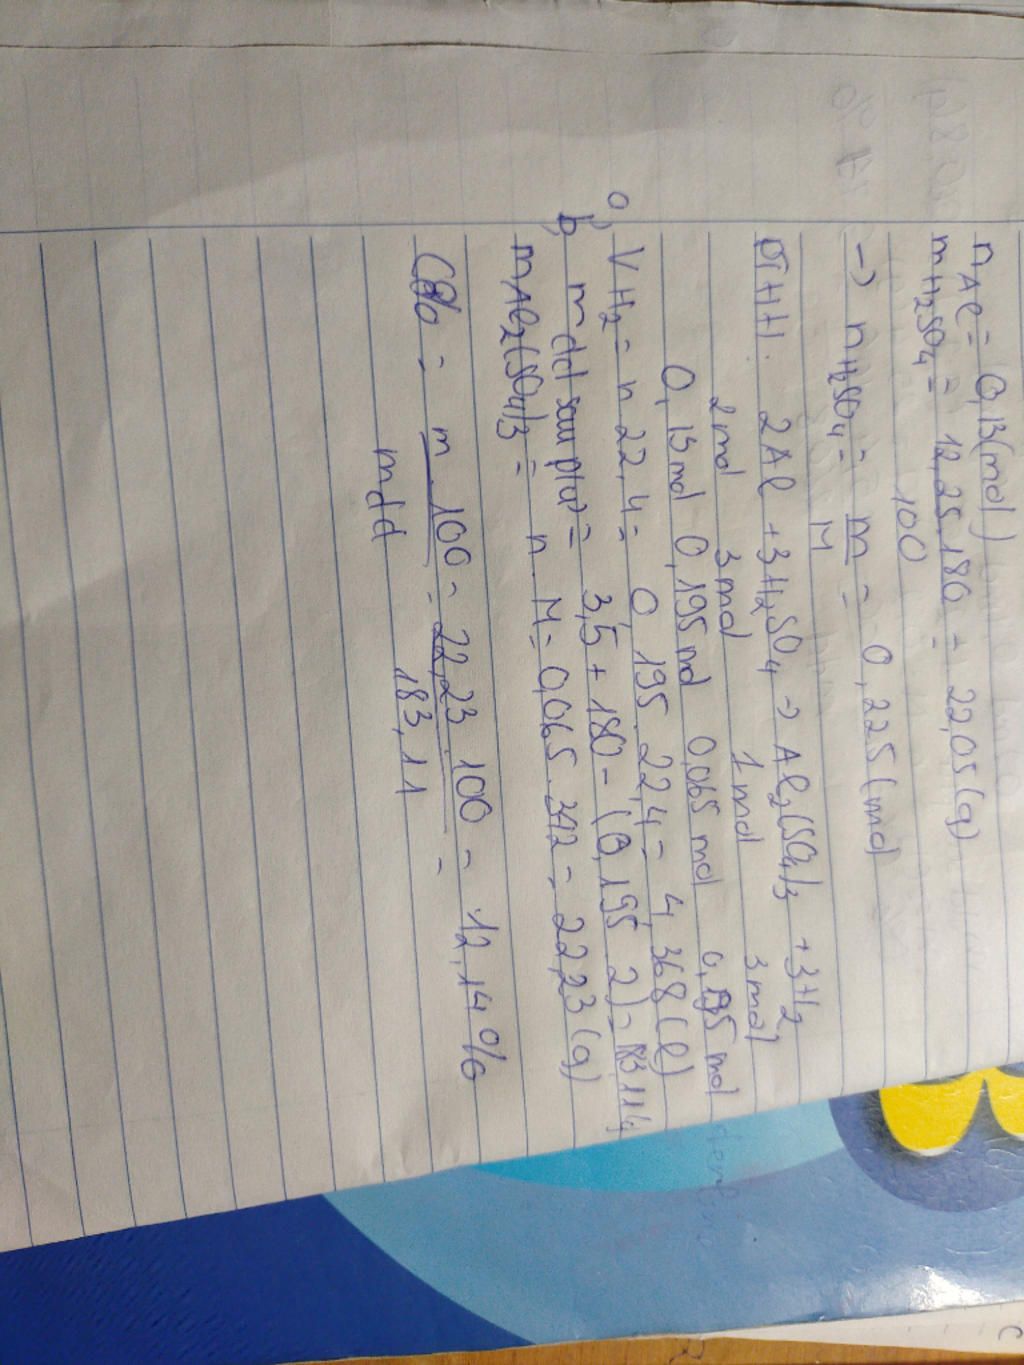 n Al = 0,13 (mol)
m H₂SO₄ = 12,25.180 = 22,05 (g)
100
-> n H₂SO₄ = m = 0,225 (mol)
M
PTHH. 2Al + 3H₂SO₄ -> Al₂(SO₄)₃ + 3H₂
2mol 3mol 1mol 3mol
0,13mol 0,195mol 0,065mol 0,195mol
a, V H₂ = n.22,4 = 0,195.22,4 = 4,368 (l)
b, mdd sau pứ = 3,5 + 180 - (0,195.2) = 183,114
m Al₂(SO₄)₃ = n.M = 0,065.342 = 22,23 (g)
C% = m.100 = 22,23.100 = 12,14%
mdd 183,11